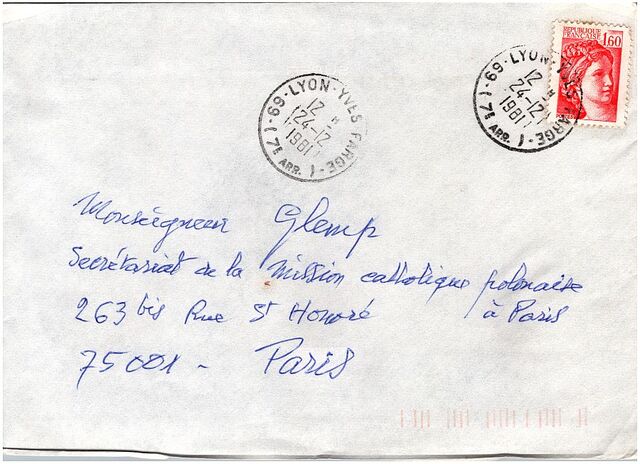 REPUBLIQUE FRANÇAISE 1,60
69-LYON-YVES FARGE-(7E ARR.)
12 H
24-12
1981
69-LYON-YVES FARGE-(7E ARR.)
12 H
24-12
1981
Monseigneur Glemp
Secrétariat de la mission catholique polonaise
à Paris
263 bis Rue St Honoré
75001 - Paris